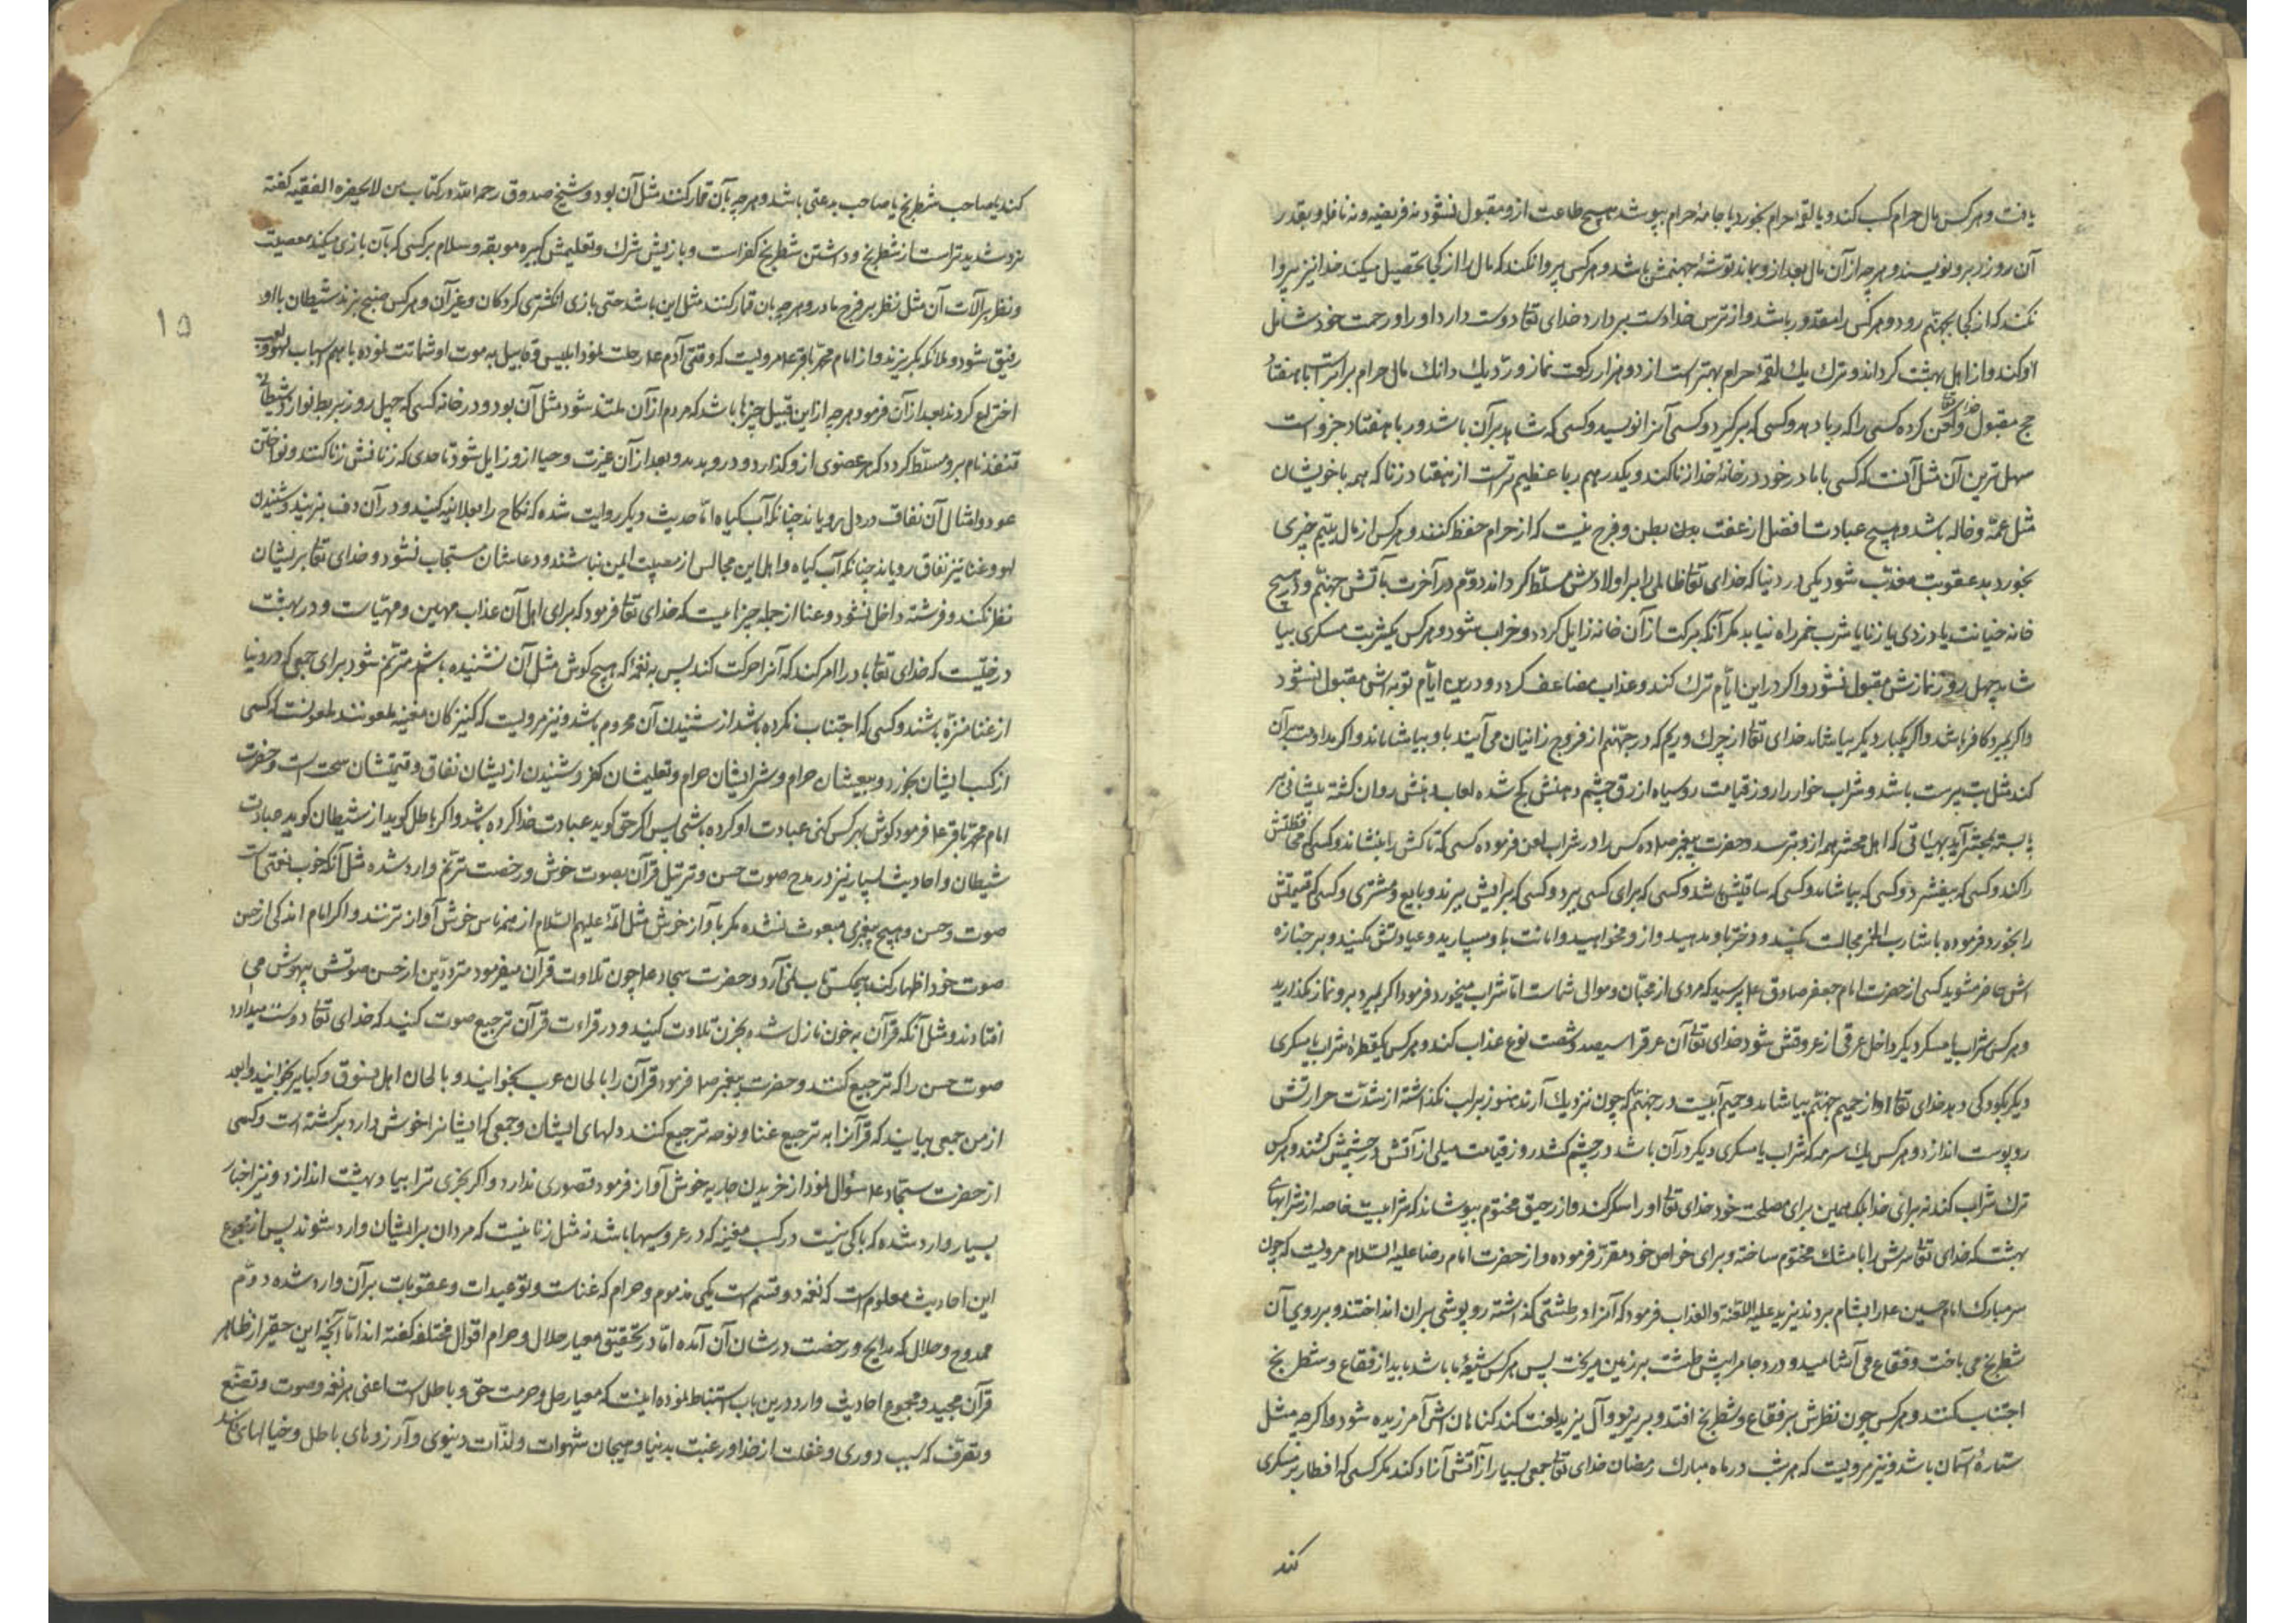 یافت و هر کس مال حرام کسب کند و یا لقمهٔ حرام بخورد یا جامهٔ حرام بپوشد هیچ طاعت ازو مقبول نشود نه فریضه و نه نافله و بقدر
آن روز زر برو نویسند و هر چه از آن مال بعد ازو بماند توشهٔ جهنمش باشد و هر کس پروا نکند که مال را از کجا تحصیل میکند خدا نیز پروا
نکند که از کجا بجهنّم رود و هر کس را مقدور باشد و از ترس خدا دست بردارد خدای تعالی دوست دارد او را و رحمت خود شامل
او کند و از اهل بهشت گرداند و ترک یک لقمهٔ حرام بهتر است از دو هزار رکعت نماز و ردّ یک دانک مال حرام برابرست با هفتاد
حج مقبول و لعن کرده خدای تعالی کسی را که ربا دهد و کسی که برگیرد و کسی آنرا نویسد و کسی که شاهد بر آن باشد و ربا هفتاد جزو است
سهل ترین آن مثل آنست که کسی با مادر خود در خانهٔ خدا زنا کند و یکدرهم ربا عظیم تر است از هفتاد زنا که همه با خویشان
مثل عمّه و خاله باشد و هیچ عبادت افضل از عفت بطن و فرج نیست که از حرام حفظ کنند و هر کس از مال یتیم چیزی
بخورد بدو عقوبت معذّب شود یکی در دنیا که خدای تعالی ظالمی را بر اولادش مسلّط گرداند دوّم در آخرت بآتش جهنّم و در هیچ
خانه خیانت یا دزدی یا زنا یا شرب خمر راه نیابد مگر آنکه برکت از آن خانه زایل گردد و خراب شود و هر کس یکشربت مسکری بیا
شامد چهل روز نمازش مقبول نشود و اگر در این ایّام ترک کند و عذاب مضاعف گردد و درین ایّام توبه‌اش مقبول نشود
و اگر بمیرد کافر باشد و اگر یکبار دیگر بیاشامد خدای تعالی از چرک و ریم که در جهنّم از فروج زانیان می‌آیند باو بیاشاماند و اگر مداومت بر آن
کند مثل بت پرست باشد و شراب خوار را روز قیامت رو سیاه ازرق چشم دهنش کج شده لعاب دهنش روان گشته پیشانی بر
پا بسته بمحشر آید بهیأتی که اهل محشر همه ازو بترسد و حضرت پیغمبر ص ده کس را در شراب لعن فرموده کسی که تاکش را بنشاند و کسی که محافظتش
را کند و کسی که بیفشرد و کسی که بیاشامد و کسی که ساقیش باشد و کسی که برای کسی ببرد و کسی که برایش ببرند و بایع و مشتری و کسی که قیمتش
را بخورد فرموده با شارب الخمر مجالست مکنید و دختر باو مدهید و ازو مخواهید و امانت باو مسپارید و عیادتش مکنید و بر جنازه
اش حاضر مشوید کسی از حضرت امام جعفر صادق ع پرسید که مردی از محبّان و موالی شماست امّا شراب میخورد فرمود اگر بمیرد برو نماز مگذارید
و هر کس شراب یا مسکر دیگر داخل عرقی از عروقش شود خدای تعالی آن عرق را سیصد و شصت نوع عذاب کند و هر کس یکقطره شراب یا مسکری
دیگر بکودکی دهد خدای تعالی او را از حمیم جهنّم بیاشاماند و حمیم آبیست در جهنّم که چون نزدیک آرند هنوز برلب نگذاشته از شدّت حرارتش
رو پوست اندازد و هر کس یک سرمه که شراب یا مسکری دیگر در آن باشد در چشم کشد روز قیامت میلی از آتش در چشمش کشند و هر کس
ترک شراب کند نه برای خدا بلکه همین برای مصلحت خود خدای تعالی او را شکر کند و از رحیق مختوم بپوشاند که شرابیست خاصه از شرابهای
بهشت که خدای تعالی سرش را با مشک مختوم ساخته و برای خواص خود مقرّر فرموده و از حضرت امام رضا علیه السّلام مرویست که چون
سر مبارک امام حسین ع را بشام بردند یزید علیه اللعنة و العذاب فرمود که آنرا در طشتی گذاشته روپوشی بر آن انداختند و بر روی آن
شطرنج می باخت و فقاع می آشامید و درد جام را پیش طشت بر زمین میریخت پس هر کس شیعهٔ ما باشد باید از فقاع و شطرنج
اجتناب کنند و هر کس چون نظرش بر فقاع و شطرنج افتد و بر یزید و آل یزید لعنت کند گناهانش آمرزیده شود و اگر چه مثل
ستارهٔ آسمان باشد و نیز مرویست که هر شب در ماه مبارک رمضان خدای تعالی جمعی بسیار را از آتش آزاد کند مگر کسی که افطار بر مسکری
کند
کند یا صاحب شطرنج یا صاحب بدعتی باشد و هر چه بآن قمار کنند مثل آن بود و شیخ صدوق رحمه الله در کتاب من لا یحضره الفقیه گفته
نرد شدیدتر است از شطرنج و داشتن شطرنج کفر است و بازیش شرک و تعلیمش کبیره موبقه و سلام بر کسی که بآن بازی میکند معصیت
و نظر بر آلات آن مثل نظر بر فرج مادر و هر چه بان قمار کنند مثل این باشد حتی بازی انکشتری کردکان و غیر آن و هر کس صنج بزند شیطان با او
رفیق شود و ملائکه بگریزند و از امام محمّد باقر ع مرویست که وقتی آدم ع رحلت نمود ابلیس و قابیل به موت او شماتت نموده با هم اسباب لهو و لعب
اختراع کردند بعد از آن فرمود هر چه از این قبیل چیزها باشد که مردم از آن ملتذ شود مثل آن بود و در خانه کسی که چهل روز بربط نوازد شیطانی
قنفذ نام برو مسلّط گردد که هر عضوی ازو گذارد و درو بدمد و بعد از آن غیرت و حیا ازو زایل شود تا حدی که زنا فش زنا کنند و نواختن
عود و امثال آن نفاق در دل رویاند چنانکه آب گیاه امّا حدیث دیگر روایت شده که نکاح را بعلانیه کنید و در آن دف بزنید و شنیدن
لهو و غنا نیز نفاق رویاند چنانکه آب گیاه و اهل این مجالس از مصیبت ایمن نباشند و دعاشان مستجاب نشود و خدای تعالی بریشان
نظر نکند و فرشته داخل نشود و غنا از جمله چیزهاییست که خدای تعالی فرمود که برای اهل آن عذاب مهین و مهیّاست و در بهشت
درختیست که خدای تعالی باد را امر کند که آنرا حرکت کند پس به نغمهٔ که هیچ گوش مثل آن نشنیده باشد مترنّم شود برای جمعی که در دنیا
از غنا منزّه باشند و کسی که اجتناب نکرده باشد از شنیدن آن محروم باشد و نیز مرویست که کنیزکان مغنیه ملعونند ملعونست کسی
از کسب ایشان بخورد و بیعشان حرام و شرایشان حرام و تعلیمشان کفر و شنیدن ازیشان نفاق و قیمتشان سحت است و حضرت
امام محمّد باقر ع فرمود گوش بهر کس کنی عبادت او کرده باشی پس اگر حق گوید عبادت خدا کرده باشد و اگر باطل گوید از شیطان گوید عبادت
شیطان و احادیث بسیار نیز در مدح صوت حسن و ترتیل قرآن بصوت خوش و رخصت ترنّم وارد شده مثل آنکه خوب نعمتی است
صوت حسن و هیچ پیغمبری مبعوث نشده مگر با آواز خوش مثل ائمّه علیهم السّلام از همه ناس خوش آوازترنند و اگر امام اندکی از حسن
صوت خود اظهار کند هیچکس تاب نمی آرد و حضرت سجاد ع چون تلاوت قرآن میفرمود متردّدین از حسن صوتش بیهوش می
افتادند و مثل آنکه قرآن به حزن نازل شده بحزن تلاوت کنید و در قراءت قرآن ترجیع صوت کنید که خدای تعالی دوست میدارد
صوت حسن را که ترجیع کنند و حضرت پیغمبر ص فرمود قرآن را بالحان عرب بخوانید و بالحان اهل فسوق و کبایر مخوانید و بعد
از من جمعی بیایند که قرآن را به ترجیع غنا و نوحه ترجیع کنند دلهای ایشان و جمعی که ایشانرا خوش دارد برگشته است و کسی
از حضرت سجّاد ع سؤال نمود از خریدن جاریه خوش آواز فرمود قصوری ندارد و اگر بخری ترا بیاد بهشت اندازد و نیز اخبار
بسیار وارد شده که باکی نیست در کسب مغنیه که در عروسیها باشد نه مثل زنا نیست که مردان برایشان وارد شوند پس از مجموع
این احادیث معلوم است که نغمه دو قسم است یکی مذموم و حرام که غناست و توعیدات و عقوبات بر آن وارد شده دوّم
ممدوح و حلال که مدایح و رخصت در شان آن آمده امّا در تحقیق معیار حلال و حرام اقوال مختلفه گفته اند امّا آنچه این حقیر از ظاهر
قرآن مجید و مجموع احادیث وارد درین باب استنباط نموده اینست که معیار حل و حرمت حق و باطل است اعنی هر نغمه و صوت و تصنّع
و تصرّف که سبب دوری و غفلت از خدا و رغبت بدنیا و هیجان شهوات و لذّات دنیوی و آرزوهای باطل و خیالهای فاسد
۱۵